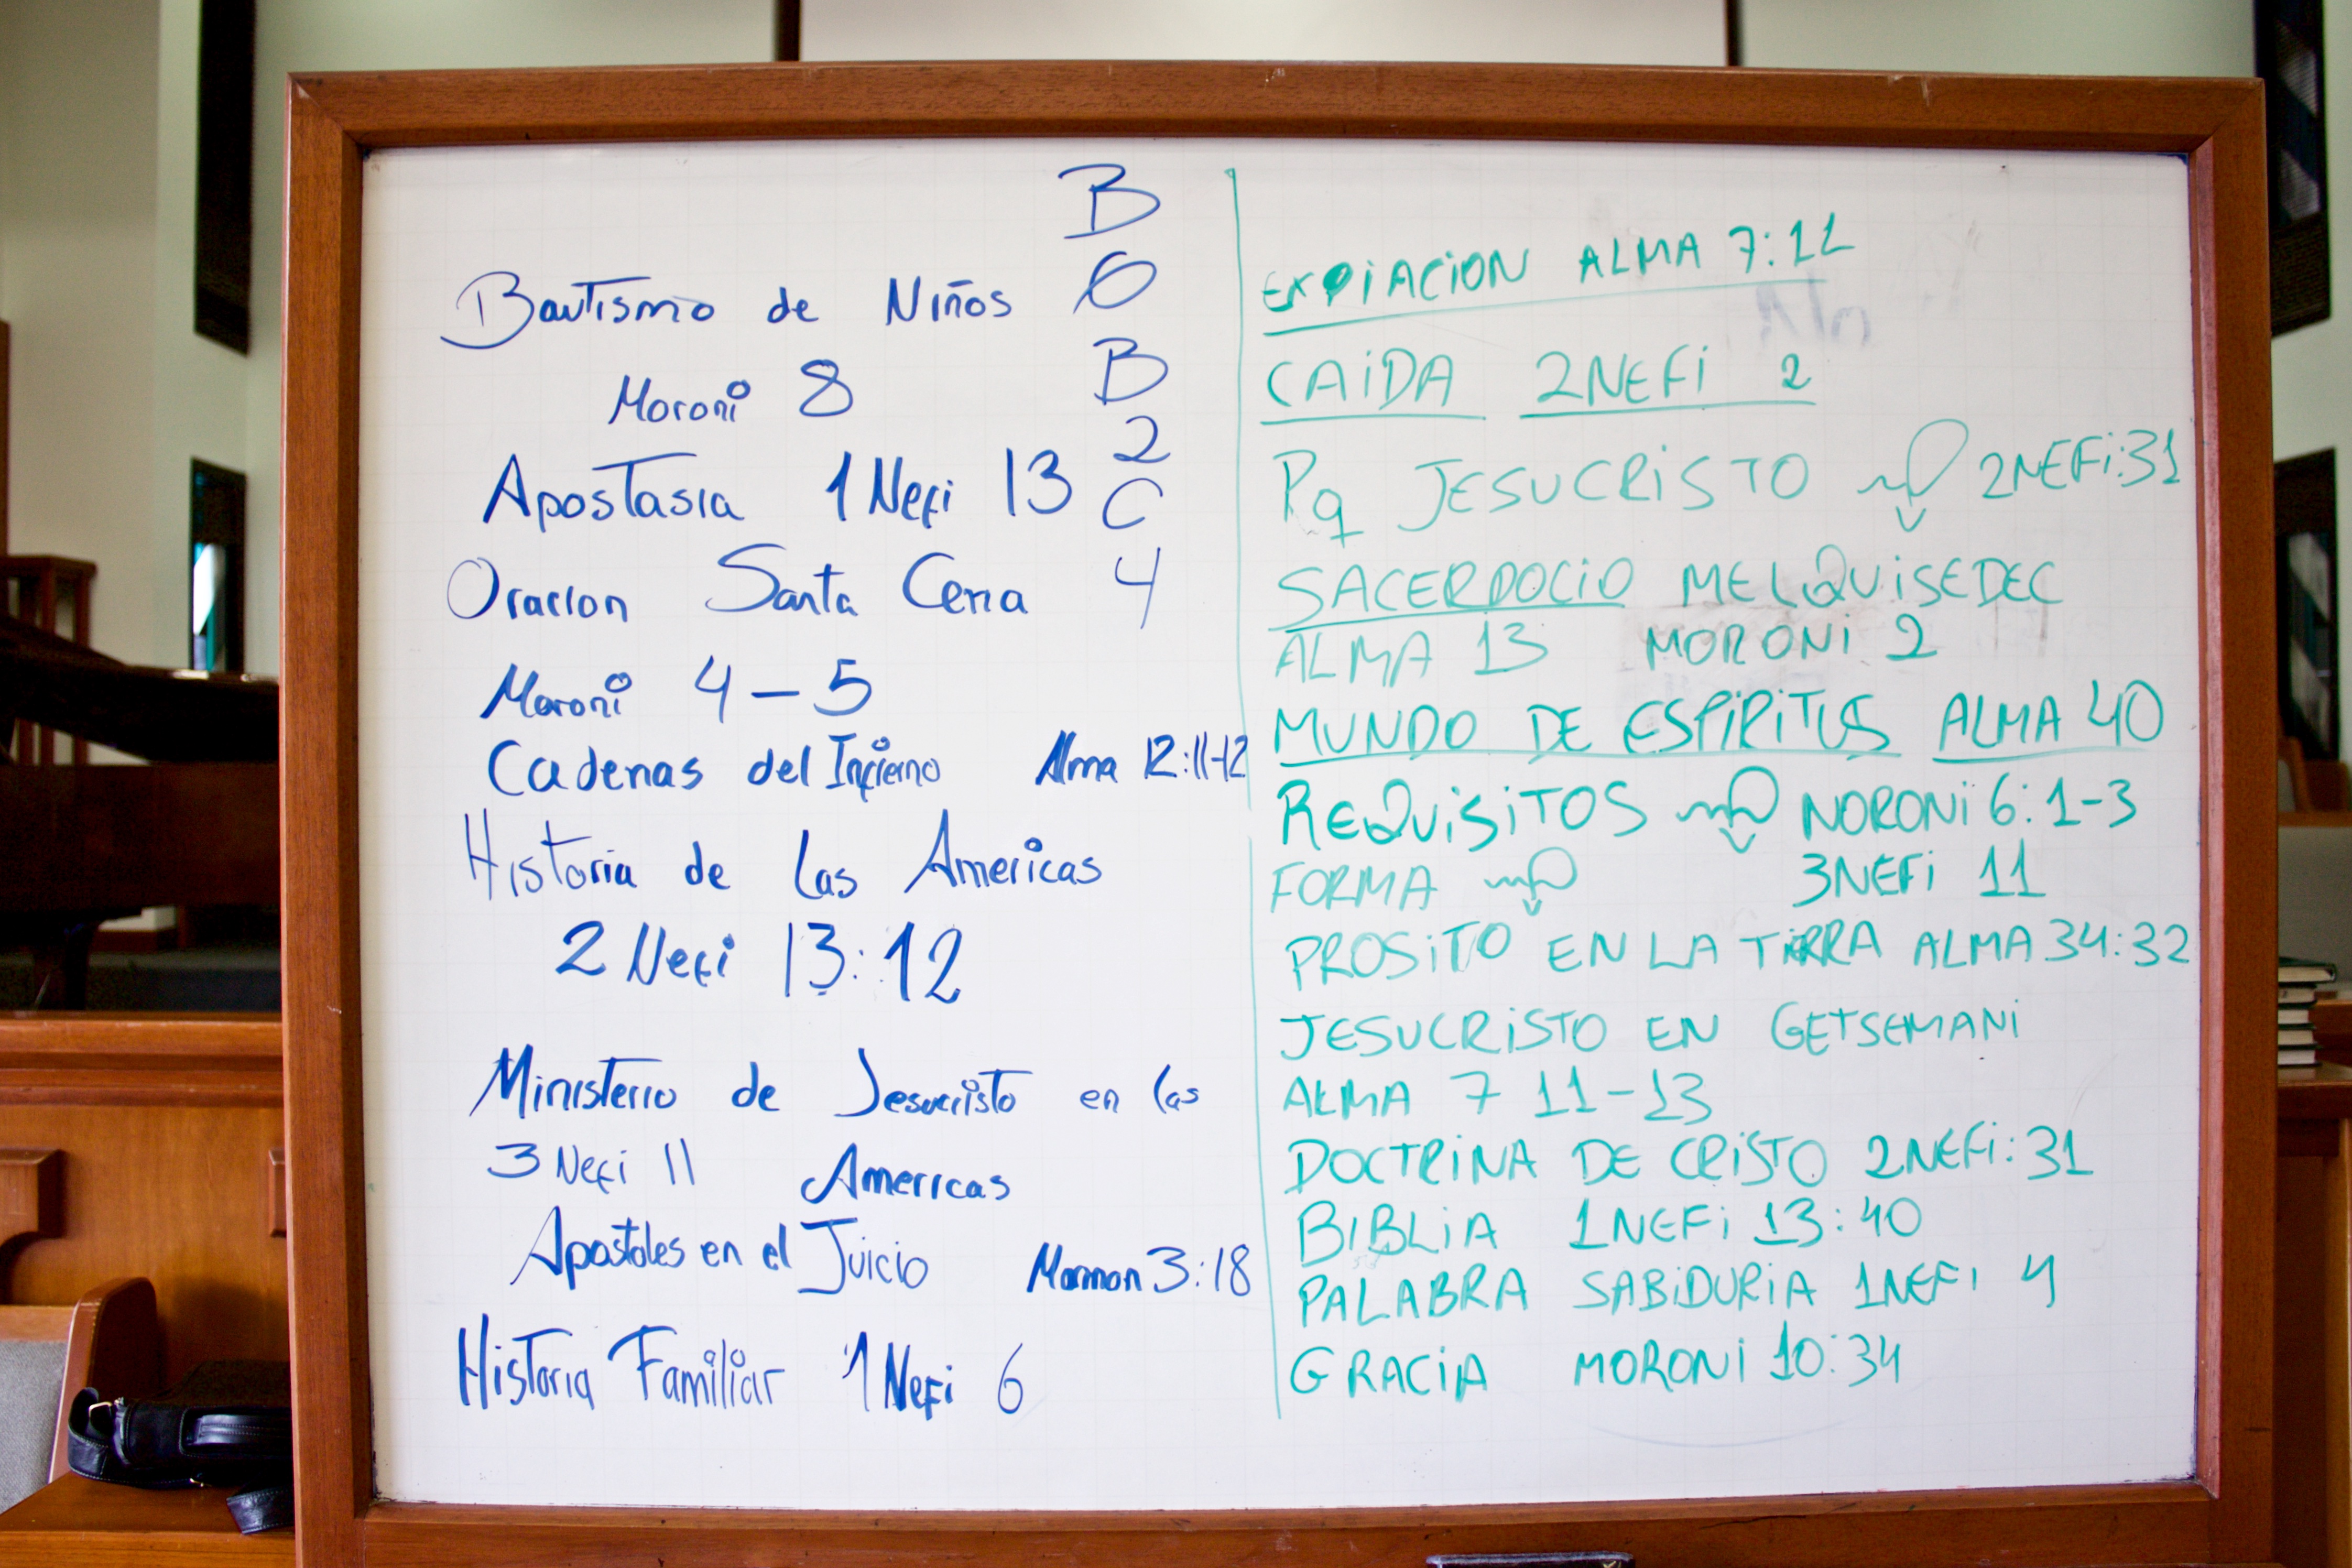 Bautismo de Niños
Moroni 8
Apostasia 1 Nefi 13
Oracion Santa Cena
Moroni 4-5
Cadenas del Infierno Alma 12:11-12
Historia de las Americas
2 Nefi 13:12
Ministerio de Jesucristo en las
3 Nefi 11 Americas
Apostoles en el Juicio Mormon 3:18
Historia Familiar 1 Nefi 6
B
O
B
2
C
4
EXPiACiON ALMA 7:11
CAiDA 2NEFi 2
Pq JESUCRiSTO 2NEFi:31
SACERDOCiO MELQUiSEDEC
ALMA 13 MORONi 2
MUNDO DE ESPiRiTUS ALMA 40
REQUiSiTOS NORONi 6:1-3
FORMA 3NEFi 11
PROSiTO EN LA TiRRA ALMA 34:32
JESUCRiSTO EN GETSEMANi
ALMA 7 11-13
DOCTRiNA DE CRiSTO 2NEFi:31
BIBLiA 1NEFi 13:40
PALABRA SABiDURiA 1NEFi 4
GRACiA MORONi 10:34